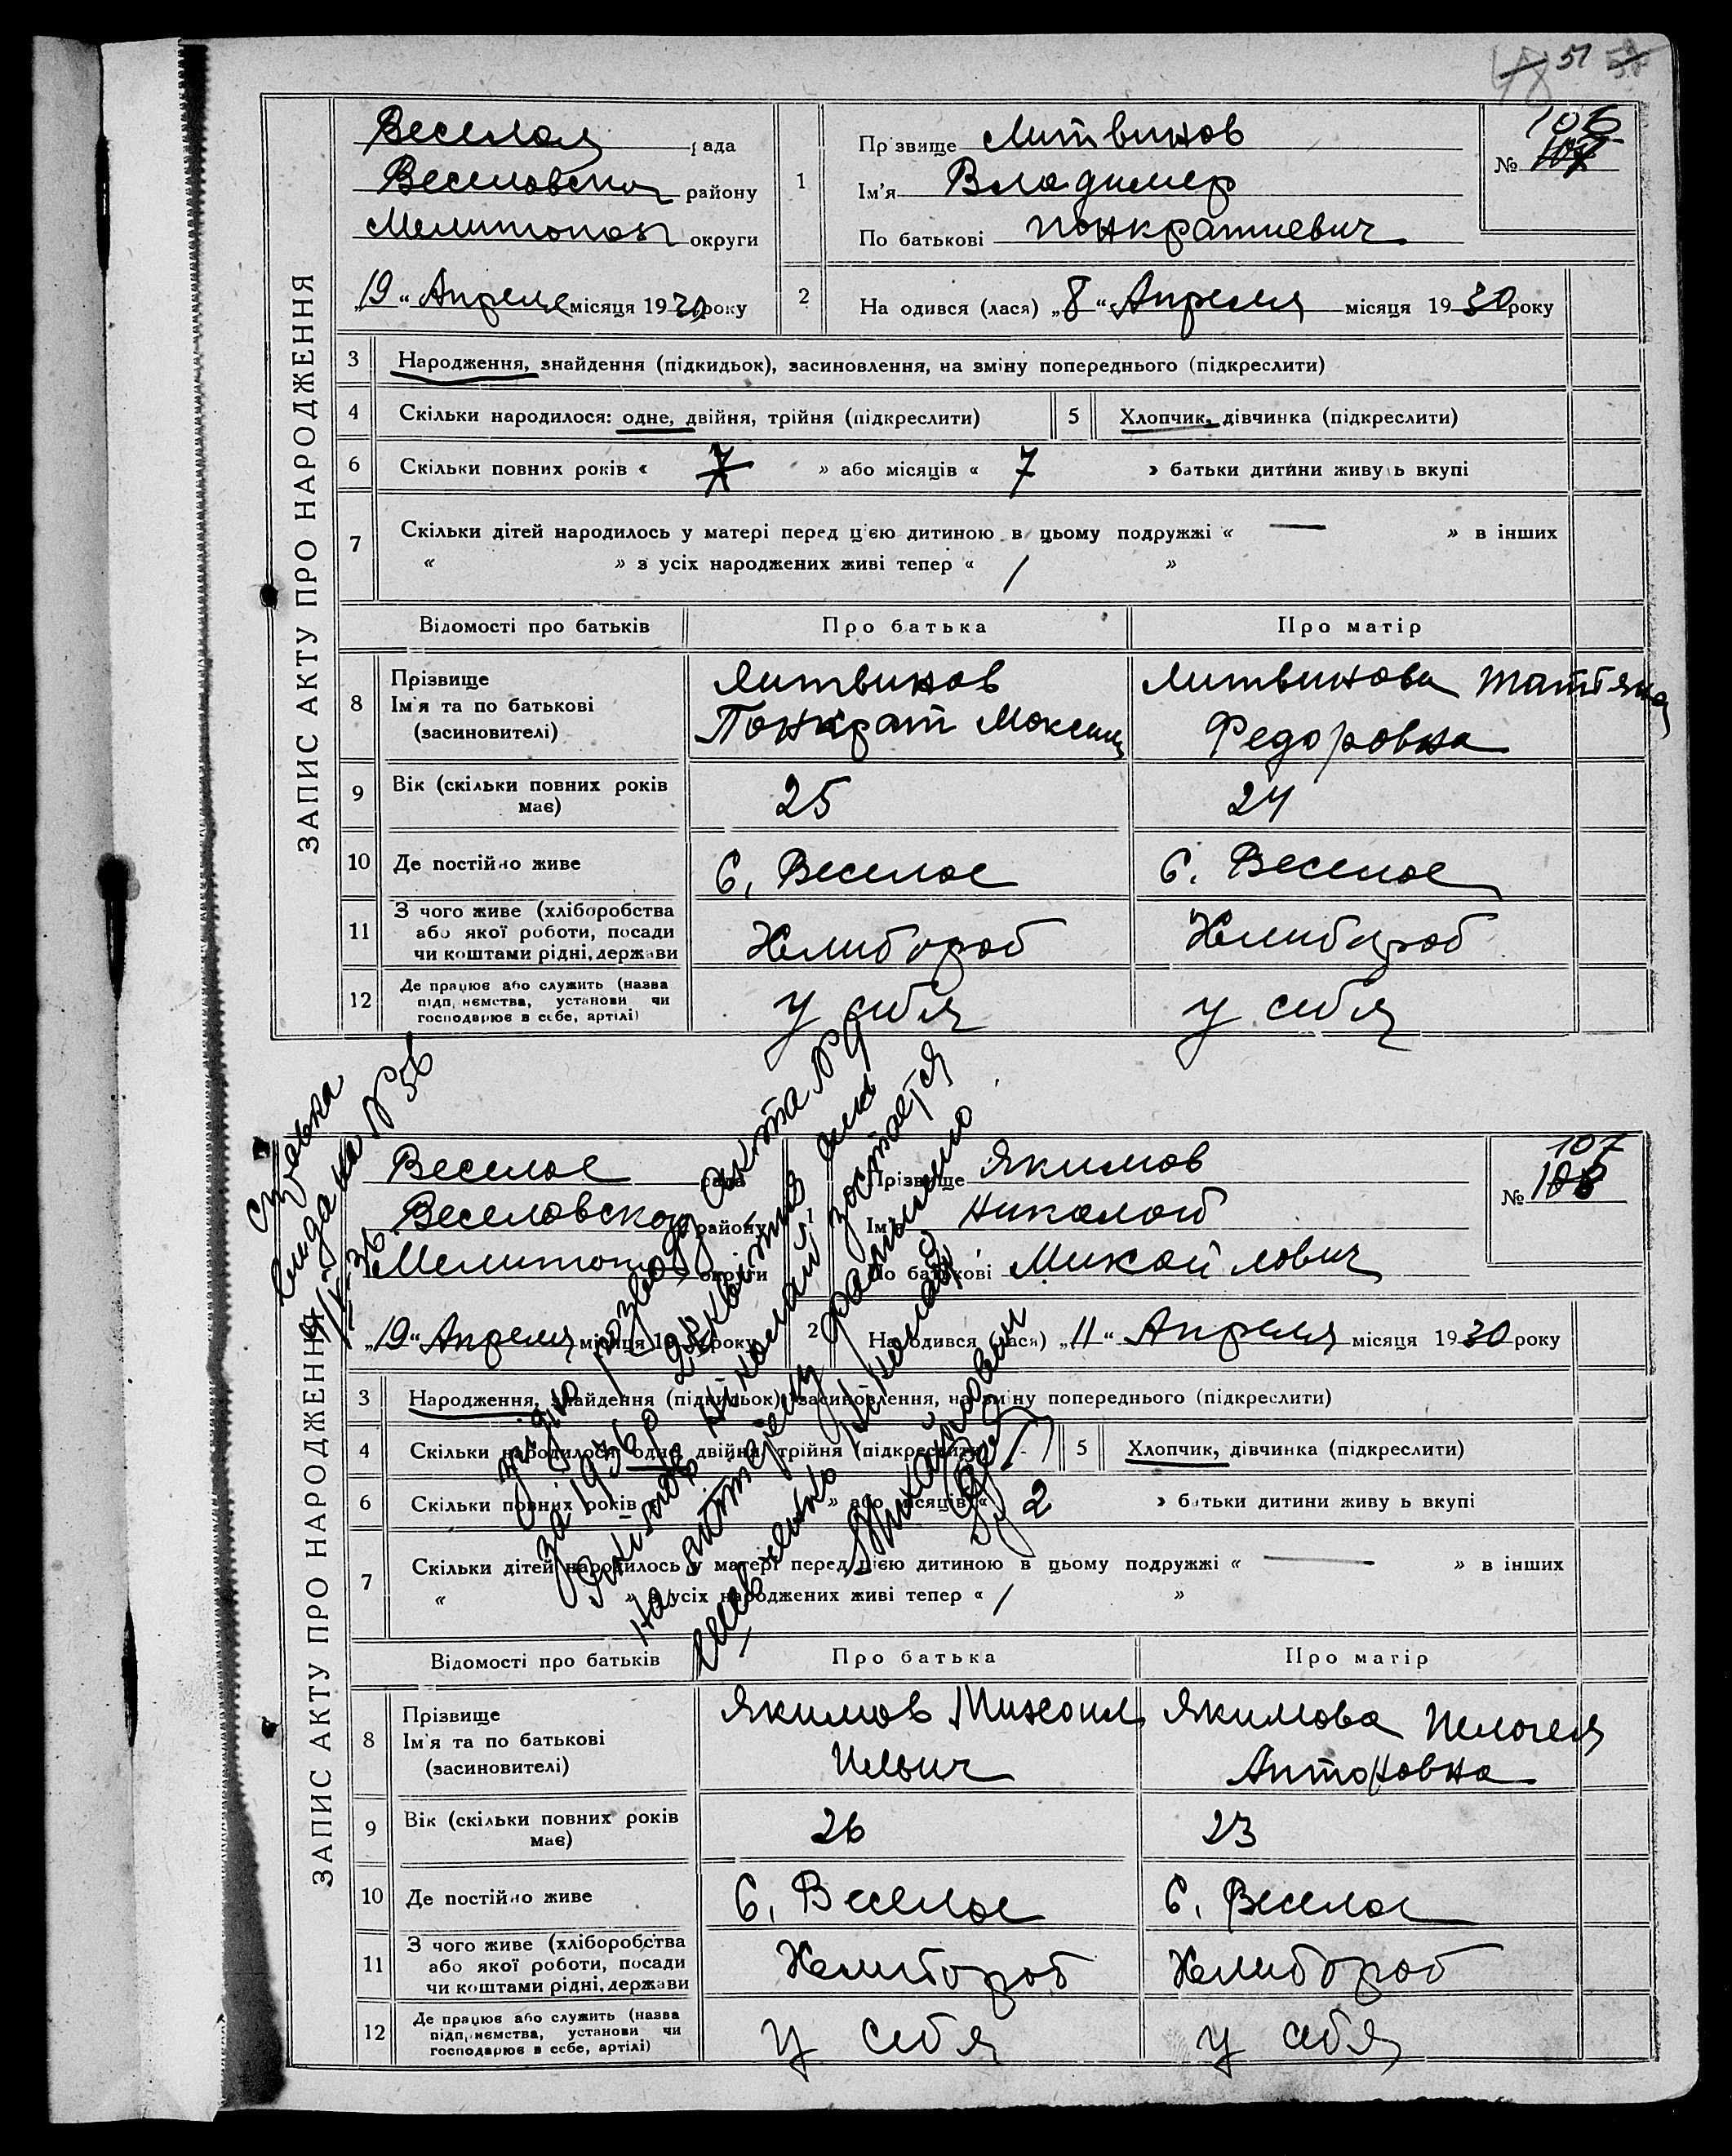 48 51 52
ЗАПИС АКТУ ПРО НАРОДЖЕННЯ
Веселая рада
Веселовского району
Мелитопол округи
„19“ Апреля місяця 1930 року
1 Прізвище Литвинов
Ім'я Владимер
По батькові Понкратиевич
106
№ 107
2 На одився (лася) „8“ Апреля місяця 1930 року
3 Народження, знайдення (підкидьок), засиновлення, на зміну попереднього (підкреслити)
4 Скільки народилося: одне, двійня, трійня (підкреслити) 5 Хлопчик, дівчинка (підкреслити)
6 Скільки повних років « 7 » або місяців « 7 » батьки дитини живуть вкупі
7 Скільки дітей народилось у матері перед цією дитиною в цьому подружжі « — » в інших
« » з усіх народжених живі тепер « 1 »
Відомості про батьків Про батька Про матір
8 Прізвище
Ім'я та по батькові
(засиновителі)
Литвинов
Понкрат Моксим
Литвинова Татьяна
Федоровна
9 Вік (скільки повних років
має) 25 24
10 Де постійно живе С. Веселое С. Веселое
11 З чого живе (хліборобства
або якої роботи, посади
чи коштами рідні, держави
Хлибороб Хлибороб
12 Де працює або служить (назва
підприємства, установи чи
господарює в себе, артілі)
у себя у себя
ЗАПИС АКТУ ПРО НАРОДЖЕННЯ
Справка
видана № 56
Веселое рада
Веселовского району
Мелитопо округи
„19“ Апреля місяця 19 року
1 Прізвище Якимов
Ім'я Николай
По батькові Михайлович
107
№ 108
2 На одився (лася) „11“ Апреля місяця 1930 року
3 Народження, знайдення (підкидьок), засиновлення, на зміну попереднього (підкреслити)
4 Скільки народилося: одне, двійня, трійня (підкреслити) 5 Хлопчик, дівчинка (підкреслити)
6 Скільки повних років « » або місяців « 2 » батьки дитини живуть вкупі
7 Скільки дітей народилось у матері перед цією дитиною в цьому подружжі « — » в інших
« » з усіх народжених живі тепер « 1 »
розвода акта № 9
за 1936 р
Якімов Ніколай зостается
на матерену фамилию
Шевченко Николай
Михайлович
Відомості про батьків Про батька Про матір
8 Прізвище
Ім'я та по батькові
(засиновителі)
Якимов Михоил
Ильич
Якимова Пелогея
Антоновна
9 Вік (скільки повних років
має) 26 23
10 Де постійно живе С. Веселое С. Веселое
11 З чого живе (хліборобства
або якої роботи, посади
чи коштами рідні, держави
Хлибороб Хлибороб
12 Де працює або служить (назва
підприємства, установи чи
господарює в себе, артілі)
у себя у себя